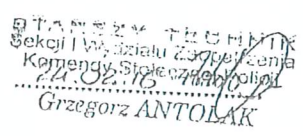 STARSZY TECHNIK
Sekcji I Wydziału Zaopatrzenia
Komendy Stołecznej Policji
24.02.16
Grzegorz ANTOLAK